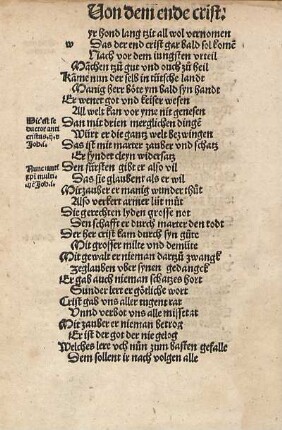 Von dem ende crist:
w yr hond lang zit all wol vernomen
Das der end crist gar bald sol komē
Nach vor dem iungsten vrteil
Mächen zů gut vnd ouch zů heil
Käme nun der selb in tütsche landt
Manig herr böte ym bald syn handt
Er wenet got vnd keiser wesen
All welt kan vor yme nit genesen
Dan mit drien merglichen dingē
Würt er die gantz welt bezwingen
Das ist mit marter zauber vnd schatz
Er synder cleyn widersatz
Den fürsten gibt er also vil
Das sie glauben als er wil
Mit zauber er manig wunder thůt
Also verkert armer lüt můt
Die gerechten lyden grosse not
Den schafft er durch marter den todt
Der her crist kam durch syn güte
Mit grosser milte vnd demüte
Mit gewalt er nieman dartzů zwangk
Zeglauben vber synen gedangck
Er gab auch nieman schatzes hort
Sunder lert er götliche wort
Crist gab vns aller tugent rat
Vnnd verbot vns alle missetat
Mit zauber er nieman betrog
Er ist der got der nie gelog
Welches lere vch nůn zum basten gefalle
Dem sollent ir nach volgen alle
Hic est se
ductor anti
cristus. ij.
Joha.
Nunc
xpi multi.
Joha.